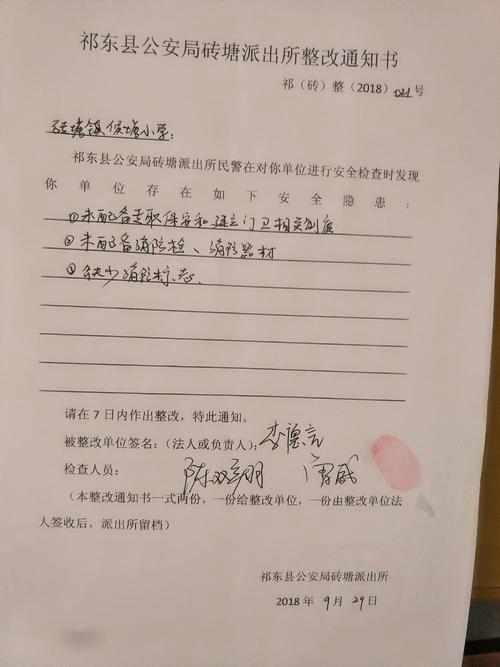 祁东县公安局砖塘派出所整改通知书
祁（砖）整（2018）021号
砖塘镇侯塘小学：
祁东县公安局砖塘派出所民警在对你单位进行安全检查时发现
你单位存在如下安全隐患：
①未配备专职保安和建立门卫相关制度
②未配备消防栓、消防器材
③缺少消防标志.
请在7日内作出整改，特此通知。
被整改单位签名：（法人或负责人）：李德言
检查人员：
（本整改通知书一式两份，一份给整改单位，一份由整改单位法
人签收后，派出所留档）
祁东县公安局砖塘派出所
2018年9月29日